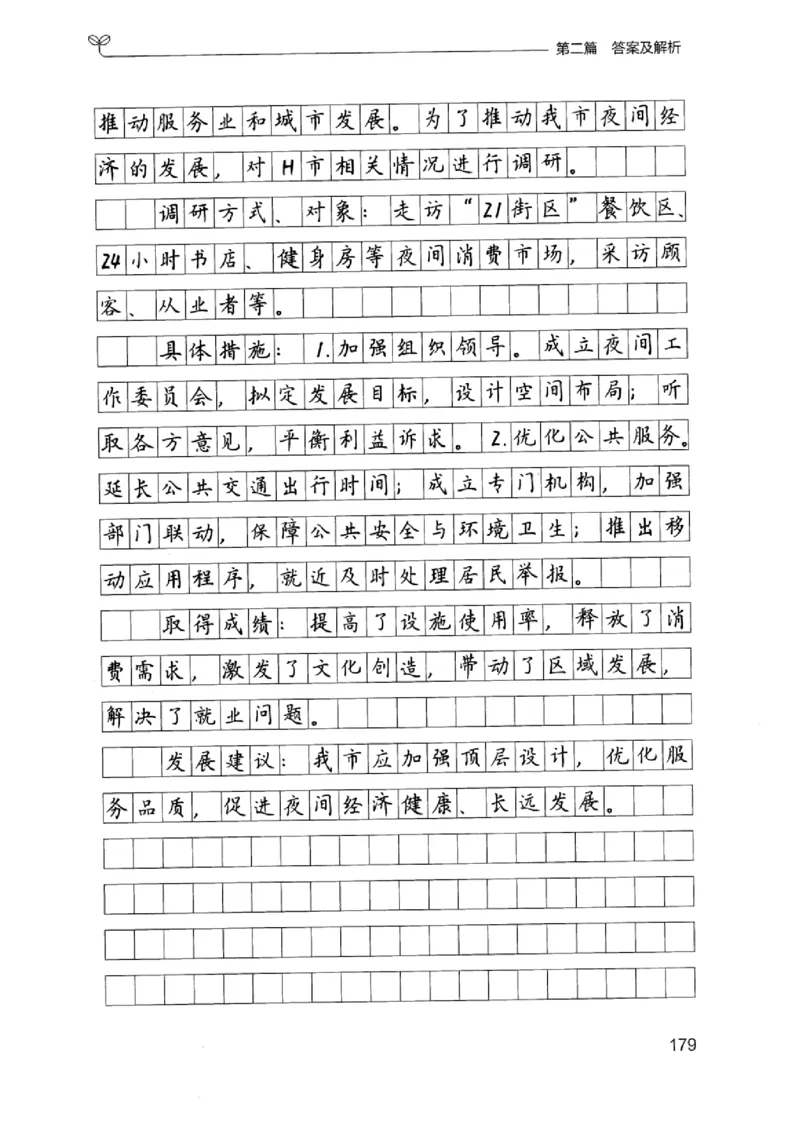 第二篇 答案及解析
推动服务业和城市发展。为了推动我市夜间经
济的发展，对H市相关情况进行调研。
调研方式、对象：走访“21街区”餐饮区、
24小时书店、健身房等夜间消费市场，采访顾
客、从业者等。
具体措施：1.加强组织领导。成立夜间工
作委员会，拟定发展目标，设计空间布局；听
取各方意见，平衡利益诉求。2.优化公共服务。
延长公共交通出行时间；成立专门机构，加强
部门联动，保障公共安全与环境卫生；推出移
动应用程序，就近及时处理居民举报。
取得成绩：提高了设施使用率，释放了消
费需求，激发了文化创造，带动了区域发展，
解决了就业问题。
发展建议：我市应加强顶层设计，优化服
务品质，促进夜间经济健康、长远发展。
179